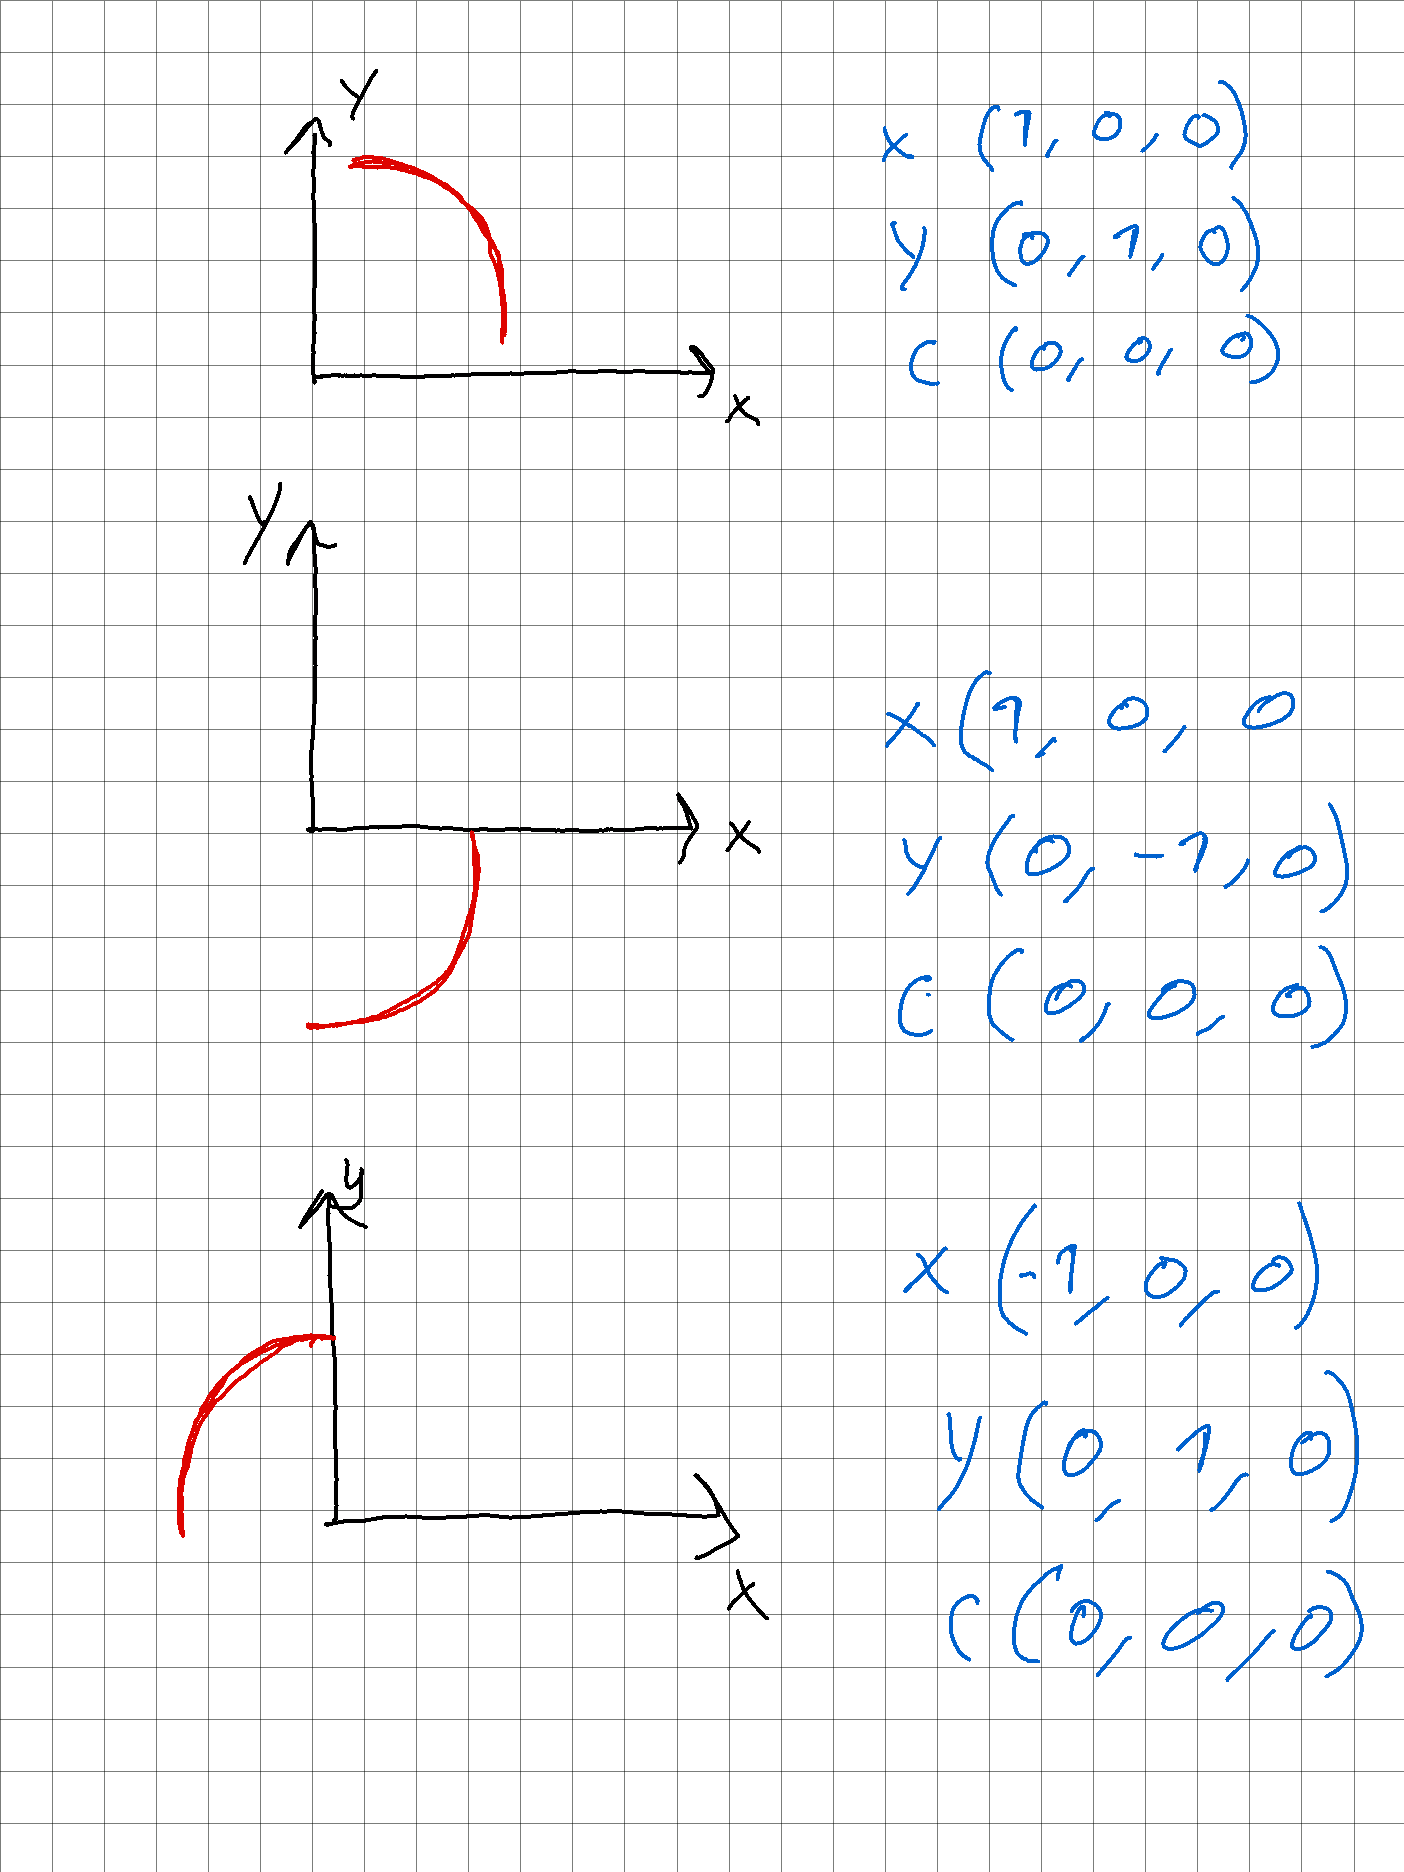 y
x (1, 0, 0)
y (0, 1, 0)
c (0, 0, 0)
x
y
x (1, 0, 0
x
y (0, -1, 0)
c (0, 0, 0)
y
x (-1, 0, 0)
y (0, 1, 0)
x
c (0, 0, 0)